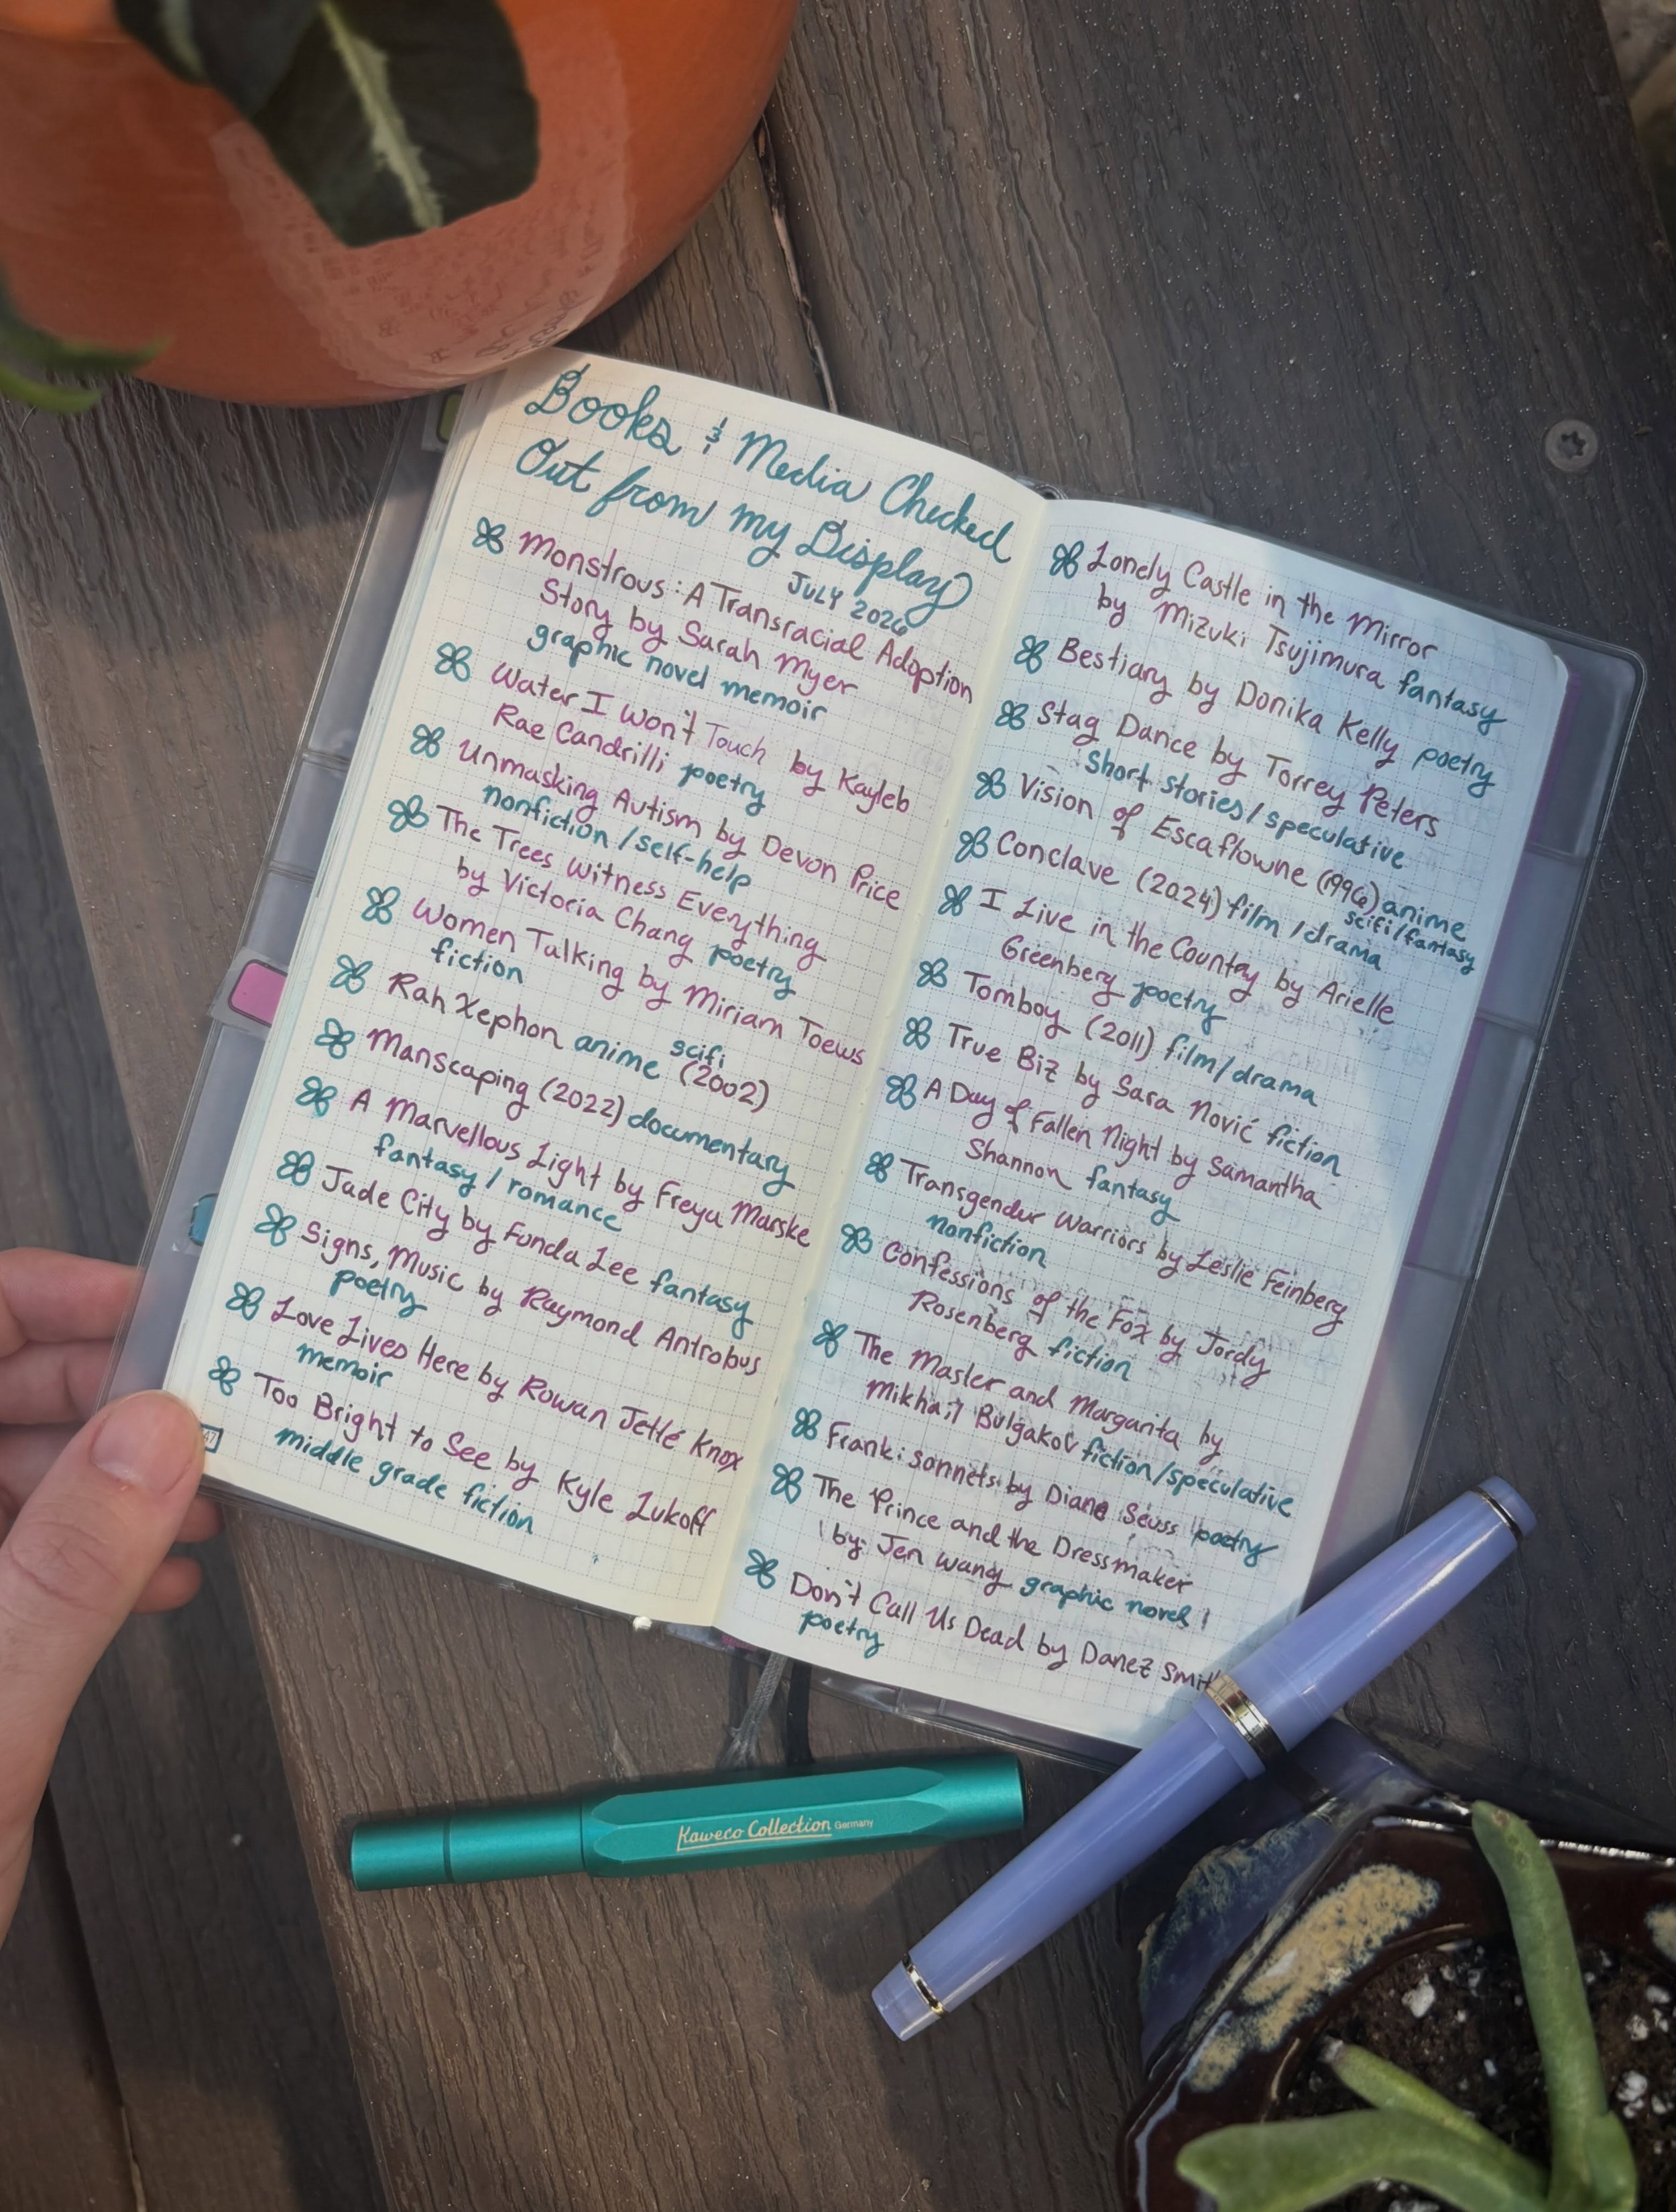 Books & Media Checked
Out from my Display
JULY 2026
Monstrous: A Transracial Adoption
Story by Sarah Myer
graphic novel memoir
Water I Won't Touch by Kayleb
Rae Candrilli poetry
Unmasking Autism by Devon Price
nonfiction/self-help
The Trees Witness Everything
by Victoria Chang poetry
Women Talking by Miriam Toews
fiction
Rah Xephon anime scifi (2002)
Manscaping (2022) documentary
A Marvellous Light by Freya Marske
fantasy/romance
Jade City by Fonda Lee fantasy
Signs, Music by Raymond Antrobus
poetry
Love Lives Here by Rowan Jetté Knox
memoir
Too Bright to See by Kyle Lukoff
middle grade fiction
47
Lonely Castle in the Mirror
by Mizuki Tsujimura fantasy
Bestiary by Donika Kelly poetry
Stag Dance by Torrey Peters
Short stories/speculative
Vision of Escaflowne (1996) anime
scifi/fantasy
Conclave (2024) film/drama
I Live in the Country by Arielle
Greenberg poetry
Tomboy (2011) film/drama
True Biz by Sara Nović fiction
A Day of Fallen Night by Samantha
Shannon fantasy
Transgender Warriors by Leslie Feinberg
nonfiction
Confessions of the Fox by Jordy
Rosenberg fiction
The Master and Margarita by
Mikhail Bulgakov fiction/speculative
Frank: sonnets by Diane Seuss poetry
The Prince and the Dressmaker
by Jen Wang graphic novel
Don't Call Us Dead by Danez Smith
poetry
Kaweco Collection Germany